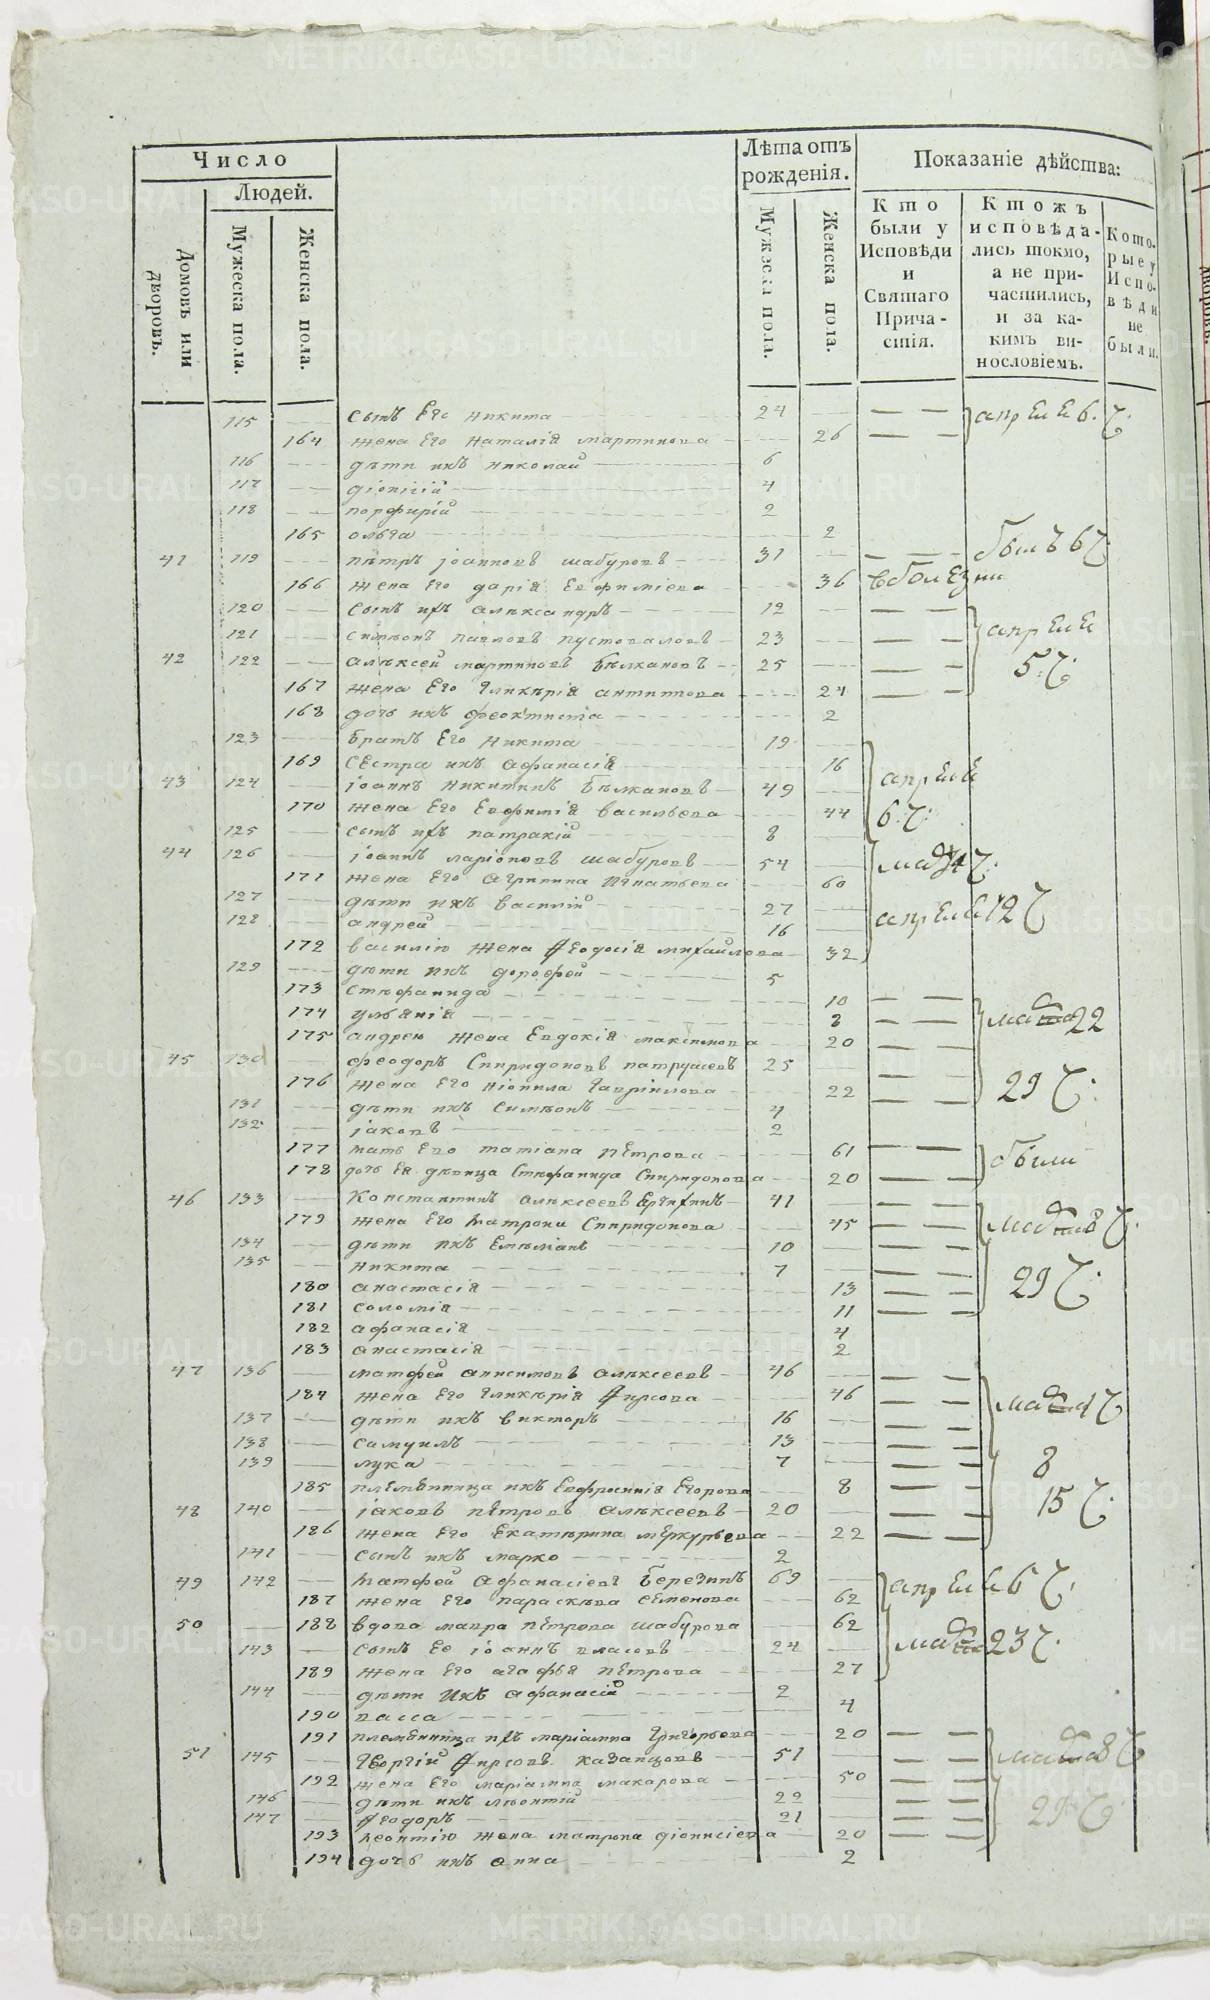 Число
Людей.
Домовъ или дворовъ.
Мужеска пола.
Женска пола.
Лѣта отъ рожденія.
Мужеска пола.
Женска пола.
Показаніе дѣйства:
Кто были у Исповѣди и Святаго Причастія.
Ктожъ исповѣдались токмо, а не причастились, и за какимъ винословіемъ.
Которые у Исповѣди не были.
115 сынъ Его никита 24 апрЕлЕ 6. Ч:
164 жена Его наталія мартинова 26
116 дѣти ихъ николай 6
117 діонісій 4
118 порфирій 2
165 ольга 2
41 119 пЕтръ іоанновъ шабуровъ 31 былъ 6 Ч:
166 жена Его дарія ЕвфиміЕва 36 в болЕзни
120 сынъ ихъ алЕксандръ 12
121 симЕонъ павловъ пустоваловъ 23 апрЕлЕ
42 122 алЕксЕй мартиновъ бѣлкановъ 25 5. Ч:
167 жена Его гликЕрія антипова 24
168 дочь ихъ феоктиста 2
123 братъ Его никита 19
169 сЕстра ихъ афанасія 16 апрЕлЕ
43 124 іоаннъ никитинъ бѣлкановъ 49
170 жена Его Евфимія васильева 44 6. Ч:
125 сынъ ихъ патракій 8
44 126 іоаннъ ларіоновъ шабуровъ 54
171 жена Его агрипина игнатьева 60
127 дѣти ихъ василій 27
128 андрей 16 апрЕлЕ 12 Ч
172 василію жена феодосія михайлова 32
129 дѣти ихъ дорофей 5
173 стЕфанида 10
174 уліянія 8 22
175 андрею жена Евдокія максимова 20
45 130 феодоръ Спиридоновъ патрушевъ 25
176 жена Его нЕонила гавріилова 22 29 Ч:
131 дѣти ихъ симЕонъ 4
132 іаковъ 2
177 мать Его татіана пЕтрова 61 были
178 дочь Ея дѣвица СтЕфанида Спиридонова 20
46 133 Константинъ алЕксЕевъ 41
179 жена Его матрона Спиридонова 45 8 Ч:
134 дѣти ихъ ЕмЕліанъ 10
135 никита 7
180 анастасія 13 29 Ч:
181 соломія 11
182 афанасія 4
183 анастасія 2
47 136 матфей анисимовъ алЕксЕевъ 46
184 жена Его гликЕрія фирсова 46
137 дѣти ихъ викторъ 16
138 самуилъ 13
139 лука 7 8
185 плЕмЕнница ихъ Евфросинія Егорова 8 15 Ч:
48 140 іаковъ пЕтровъ алЕксЕевъ 20
186 жена Его Екатерина мЕркурьева 22
141 сынъ ихъ марко 2
49 142 матфей афанасіевъ березинъ 69 апрЕлЕ 6 Ч:
187 жена Его параскЕва сЕменова 62
50 188 вдова мавра пЕтрова шабурова 62
143 сынъ Ее іоаннъ власовъ 24 23 Ч:
189 жена Его агафья пЕтрова 27
144 дѣти ихъ афанасій 2
190 васса 4
191 племЕнница ихъ маріамна григорьева 20
51 145 гЕоргій фирсовъ казанцовъ 51 8 Ч
192 жена Его маріамна макарова 50
146 дѣти ихъ лЕонтій 22
147 феодоръ 21 29 Ч:
193 лЕонтію жена матрона діонисіева 20
194 дочь ихъ анна 2
METRIKI.GASO-URAL.RU